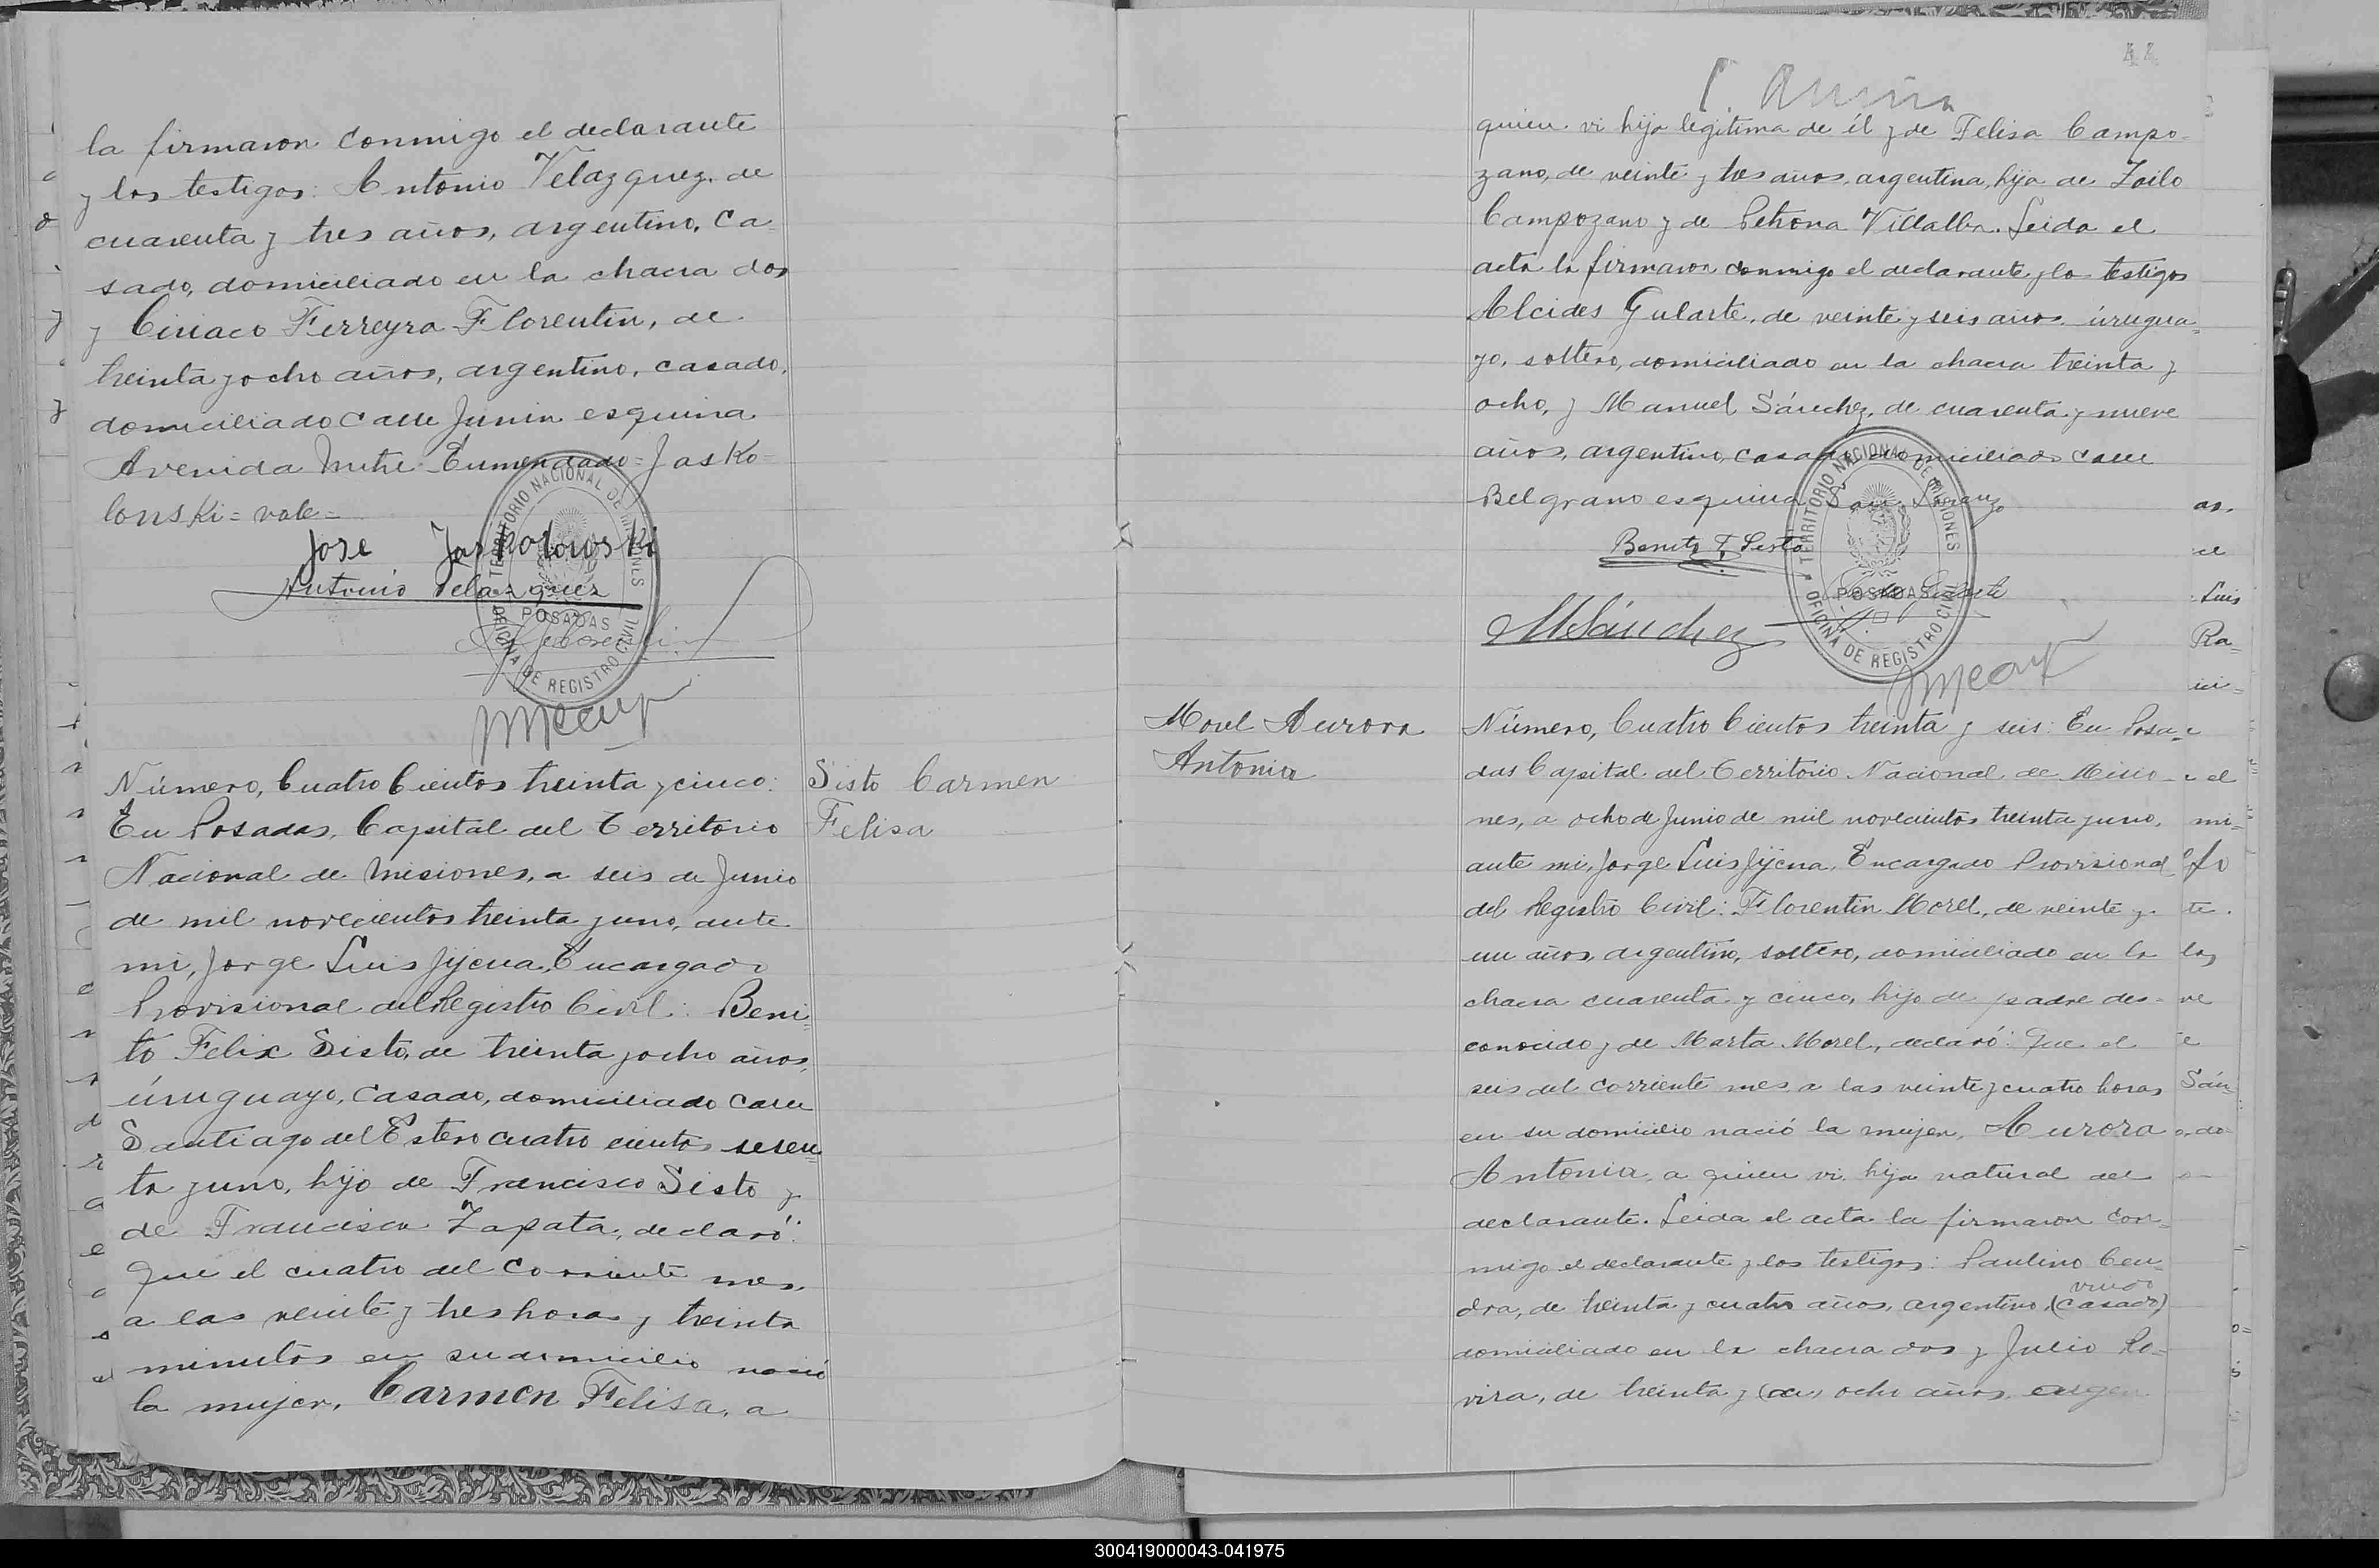 la firmaron conmigo el declarante
y los testigos: Antonio Velazquez, de
cuarenta y tres años, argentino, ca=
sado, domiciliado en la chacra dos
y Ciriaco Ferreyra Florentin, de
treinta y ocho años, argentino, casado,
domiciliado calle Junin esquina
Avenida Mitre. Enmendado= Jasko=
lonski= vale=
Jose Jaskolowski
Antonio Velazquez
TERRITORIO NACIONAL DE MISIONES
POSADAS
OFICINA DE REGISTRO CIVIL
Número, Cuatro Cientos treinta y cinco:
En Posadas, Capital del Territorio
Nacional de Misiones, a seis de Junio
de mil novecientos treinta y uno, ante
mi, Jorge Luis Jijena, Encargado
Provisional del Registro Civil: Beni=
to Felix Sisto, de treinta y ocho años,
úruguayo, casado, domiciliado calle
Santiago del Estero cuatro cientos sesen=
ta y uno, hijo de Francisco Sisto y
de Francisca Zapata, declaró:
Que el cuatro del corriente mes,
a las veinte y tres horas y treinta
minutos en su domicilio nació
la mujer, Carmen Felisa, a
Sisto Carmen
Felisa
quien vi hija legitima de él y de Felisa Campo=
zano, de veinte y tres años, argentina, hija de Zoilo
Campozano y de Petrona Villalba. Leida el
acta la firmaron conmigo el declarante y los testigos
Alcides Gularte, de veinte y seis años, úrugua=
yo, soltero, domiciliado en la chacra treinta y
ocho, y Manuel Sánchez, de cuarenta y nueve
años, argentino, casado, domiciliado calle
Belgrano esquina San Lorenzo
Benito F. Sisto
MSánchez
TERRITORIO NACIONAL DE MISIONES
POSADAS
OFICINA DE REGISTRO CIVIL
Morel Aurora
Antonia
Número, Cuatro Cientos treinta y seis: En Posa=
das Capital del Territorio Nacional de Misio=
nes, a ocho de Junio de mil novecientos treinta y uno,
ante mi, Jorge Luis Jijena, Encargado Provisional
del Registro Civil: Florentin Morel, de veinte y
un años, argentino, soltero, domiciliado en la
chacra cuarenta y cinco, hijo de padre des=
conocido y de Marta Morel, declaró: Que el
seis del corriente mes a las veinte y cuatro horas
en su domicilio nació la mujer, Aurora
Antonia, a quien vi hija natural del
declarante. Leida el acta la firmaron con=
migo el declarante y los testigos: Paulino Cen=
viudo
dra, de treinta y cuatro años, argentino, (casado)
domiciliado en la chacra dos y Julio Ro=
vira, de treinta y ocho años, argen
as.
el
Luis
Ra=
el
mi=
te.
las
Sán=
300419000043-041975